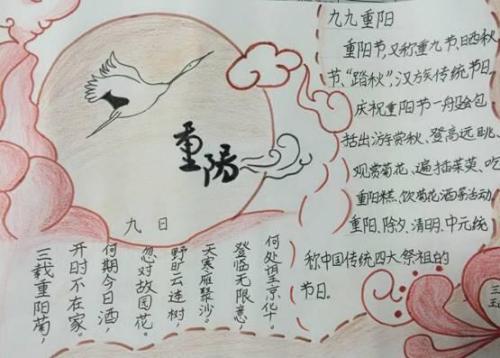 重阳
九九重阳
重阳节,又称重九节、晒秋
节、“踏秋”,汉族传统节日,
庆祝重阳节一般会包
括出游赏秋、登高远眺、
观赏菊花、遍插茱萸、吃
重阳糕、饮菊花酒等活动
重阳、除夕、清明、中元统
称中国传统四大祭祖的
节日。
九日
三载重阳菊,
开时不在家。
何期今日酒,
忽对故园花。
野旷云连树,
天寒雁聚沙。
登临无限意,
何处望京华。